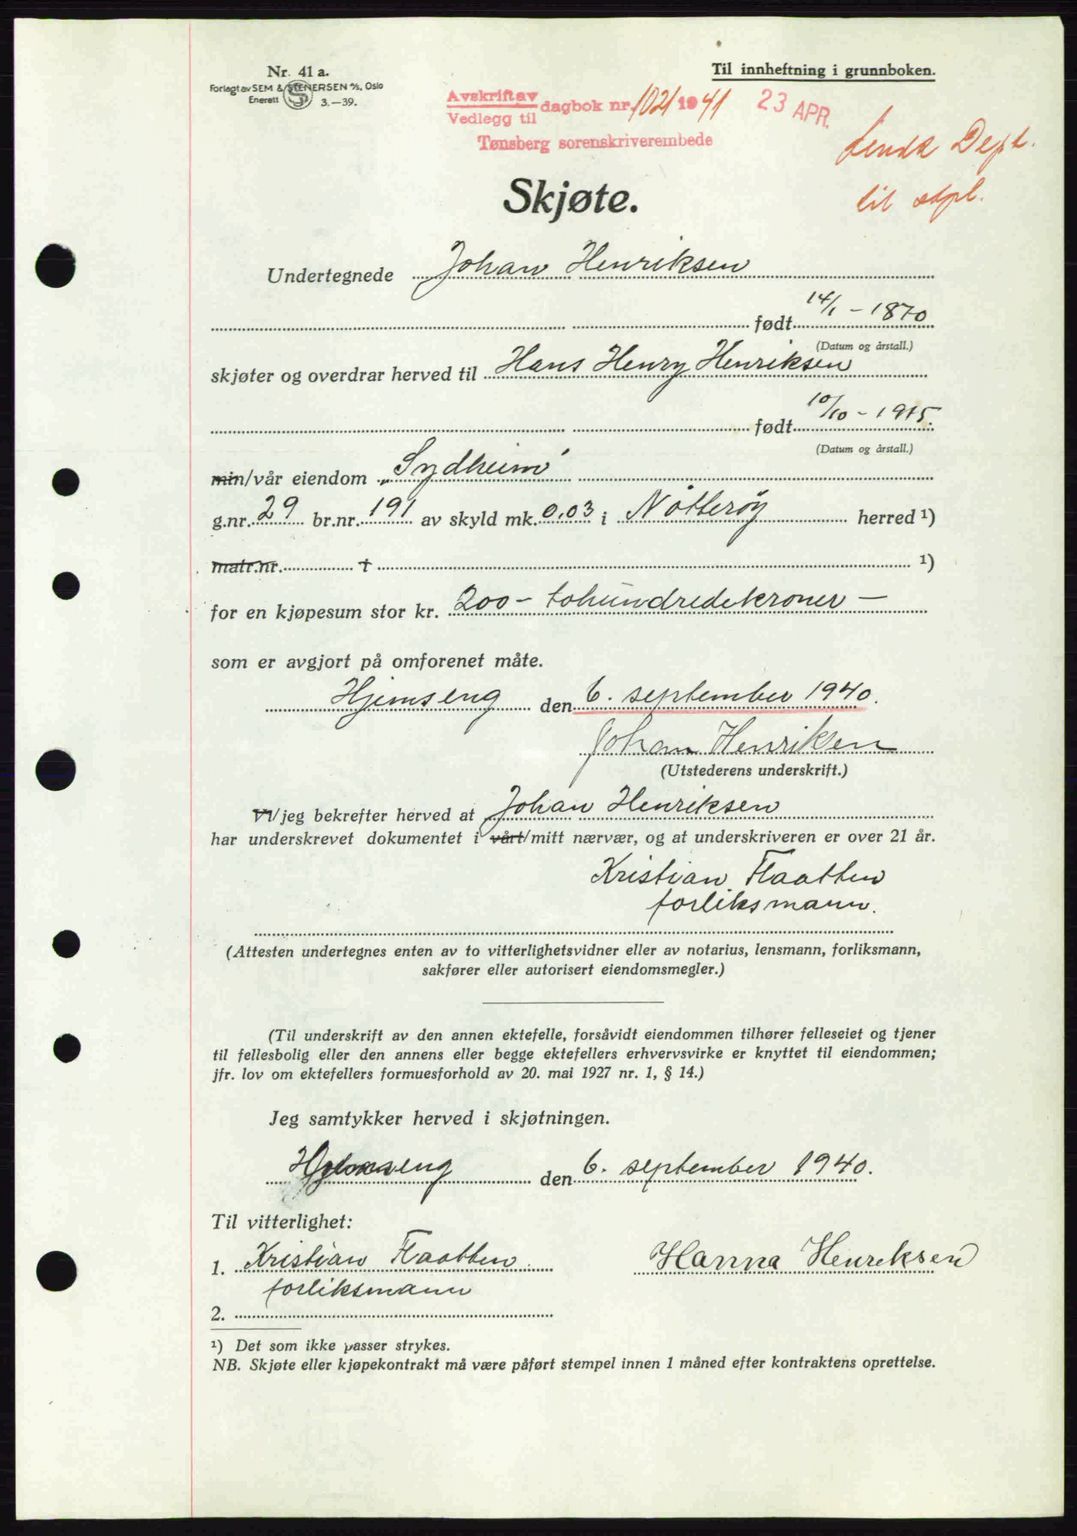 Nr. 41 a.
Forlagt av SEM & STENERSEN A/S, Oslo
Enerett S 3.—39.
Til innheftning i grunnboken.
Avskrift av
Vedlegg til
dagbok nr. 1021 1941 23 APR.
Tønsberg sorenskriverembede
Sendt Dept.
til stpl.
Skjøte.
Undertegnede Johan Henriksen
født 14/1 - 1870
(Datum og årstall.)
skjøter og overdrar herved til Hans Henry Henriksen
født 10/10 - 1915.
(Datum og årstall.)
min/vår eiendom „Sydheim"
g.nr. 29 br.nr. 191 av skyld mk. 0,03 i Nøtterøy herred ¹)
matr.nr. i ¹)
for en kjøpesum stor kr. 200 - tohundredekroner -
som er avgjort på omforenet måte.
Hjemseng den 6. september 1940.
Johan Henriksen
(Utstederens underskrift.)
Vi/jeg bekrefter herved at Johan Henriksen
har underskrevet dokumentet i vårt/mitt nærvær, og at underskriveren er over 21 år.
Kristian Flaatten
forliksmann.
(Attesten undertegnes enten av to vitterlighetsvidner eller av notarius, lensmann, forliksmann,
sakfører eller autorisert eiendomsmegler.)
(Til underskrift av den annen ektefelle, forsåvidt eiendommen tilhører felleseiet og tjener
til fellesbolig eller den annens eller begge ektefellers erhvervsvirke er knyttet til eiendommen;
jfr. lov om ektefellers formuesforhold av 20. mai 1927 nr. 1, § 14.)
Jeg samtykker herved i skjøtningen.
Hjemseng den 6. september 1940.
Til vitterlighet:
1. Kristian Flaatten Hanna Henriksen
forliksmann
2.
¹) Det som ikke passer strykes.
NB. Skjøte eller kjøpekontrakt må være påført stempel innen 1 måned efter kontraktens oprettelse.